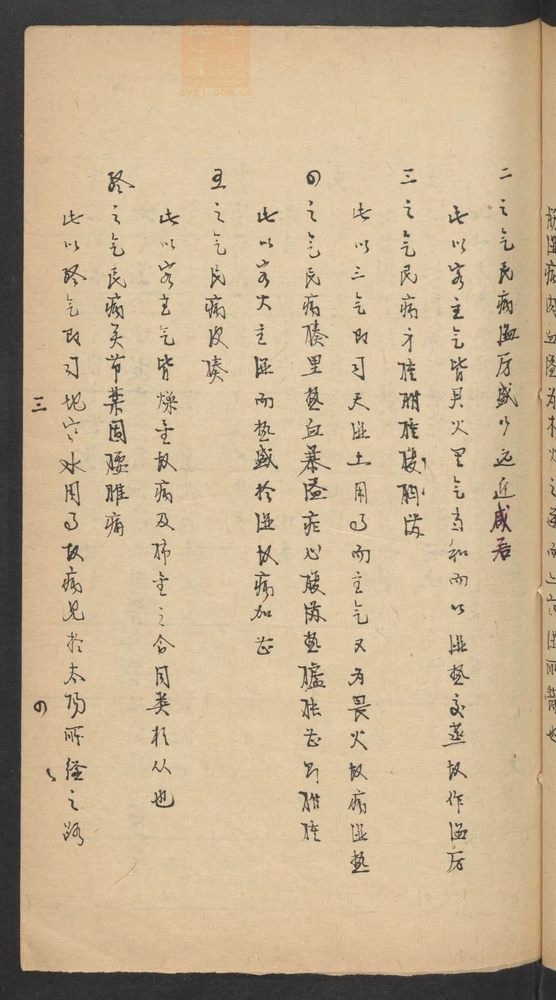 二之气民病温厉盛行远近咸若
此以客主气皆具火里气育和而以湿热交蒸故作温厉
三之气民病身肿胕肿腹胸满
此以三气即司天湿土用事而主气又为畏火故病湿热
四之气民病腠里热血暴溢疟心腹满热胪胀甚则胕肿
此以客火主湿而热盛於湿故病加甚
五之气民病皮腠
此以客主气皆燥金故病及肺金之合同类相从也
终之气民病关节禁固腰脽痛
此以终气即司地寒水用事故病见於太阳所经之路
三
四